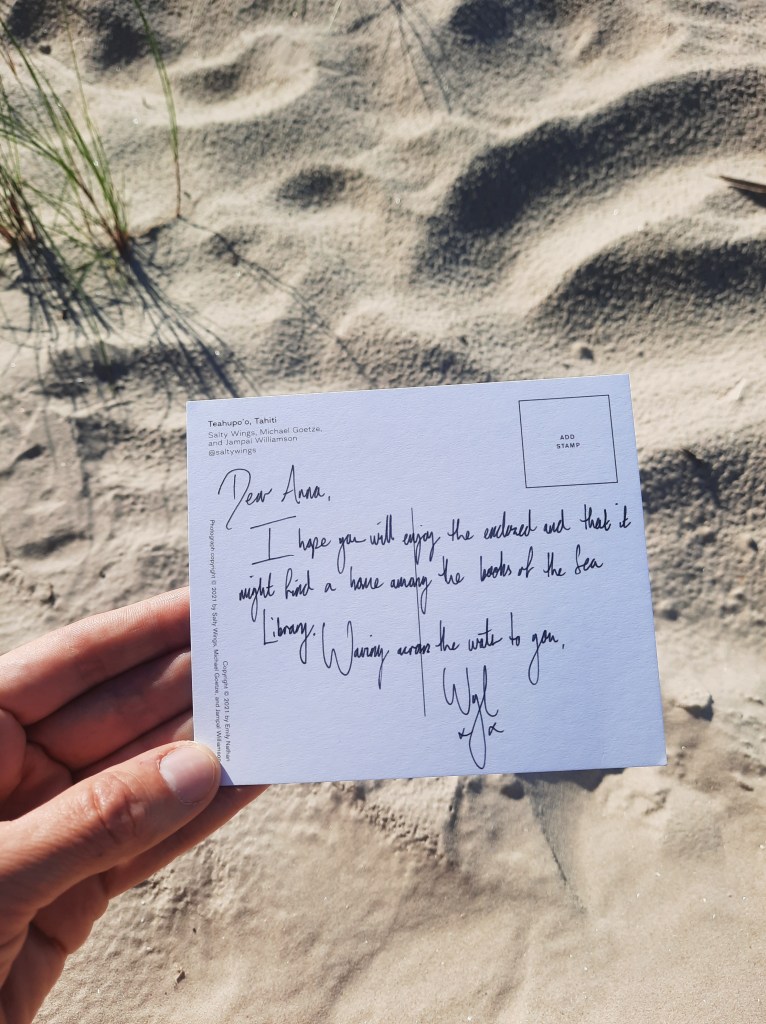 Teahupo'o, Tahiti
Salty Wings, Michael Goetze,
and Jampal Williamson
@saltywings
ADD
STAMP
Dear Anna,
I hope you will enjoy the enclosed and that it
might find a home among the books of the Sea
Library. Waving across the water to you,
Photograph copyright © 2021 by Salty Wings, Michael Goetze, and Jampal Williamson
Copyright © 2021 by Emily Nathan